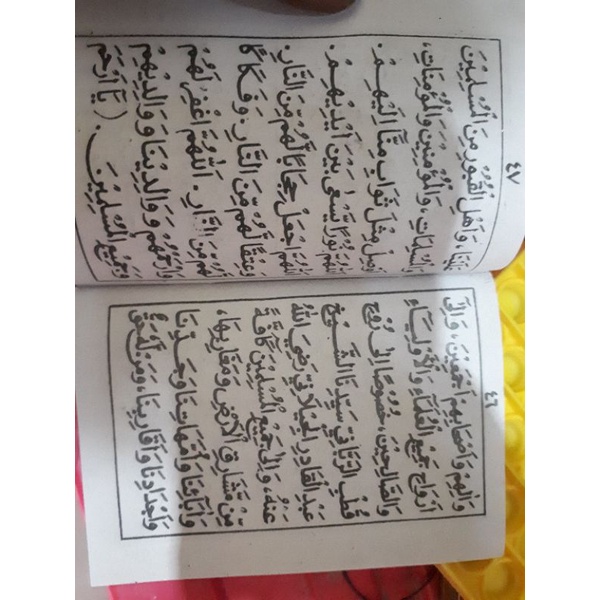 ٤٦
وَآلِهِمْ وَأَصْحَابِهِمْ أَجْمَعِيْنَ، وَإِلَى
أَرْوَاحِ جَمِيْعِ الْعُلَمَاءِ وَالْأَوْلِيَاءِ
وَالصَّالِحِيْنَ، خُصُوْصًا إِلَى رُوْحِ
قُطْبِ الرَّبَّانِيِّ سَيِّدِنَا الشَّيْخِ
عَبْدِ الْقَادِرِ الْجِيْلَانِيْ رَضِيَ اللهُ
عَنْهُ، وَإِلَى جَمِيْعِ الْمُسْلِمِيْنَ كَافَّةً
مِنْ مَشَارِقِ الْأَرْضِ وَمَغَارِبِهَا،
وَآبَائِنَا وَأُمَّهَاتِنَا وَجَدَّاتِنَا
وَأَجْدَادِنَا وَأَقَارِبِنَا، وَمَنْ لَهُ حَقٌّ
٤٧
عَلَيْنَا، وَأَهْلِ الْقُبُوْرِ مِنَ الْمُسْلِمِيْنَ
وَالْمُسْلِمَاتِ، وَالْمُؤْمِنِيْنَ وَالْمُؤْمِنَاتِ،
مِثْلَ ثَوَابٍ مِنَّا إِلَيْهِمْ.
نُوْرًا يَسْعَى بَيْنَ أَيْدِيْهِمْ.
اَللّٰهُمَّ اجْعَلْ حِجَابًا لَهُمْ مِنَ النَّارِ.
وَعِتْقًا لَهُمْ مِنَ النَّارِ. وَفَكَاكًا
لَهُمْ مِنَ النَّارِ. اَللّٰهُمَّ اغْفِرْ لَهُمْ
وَارْحَمْهُمْ وَوَالِدِيْنَا وَوَالِدِيْهِمْ
وَجَمِيْعِ الْمُسْلِمِيْنَ. (يَا أَرْحَمَ